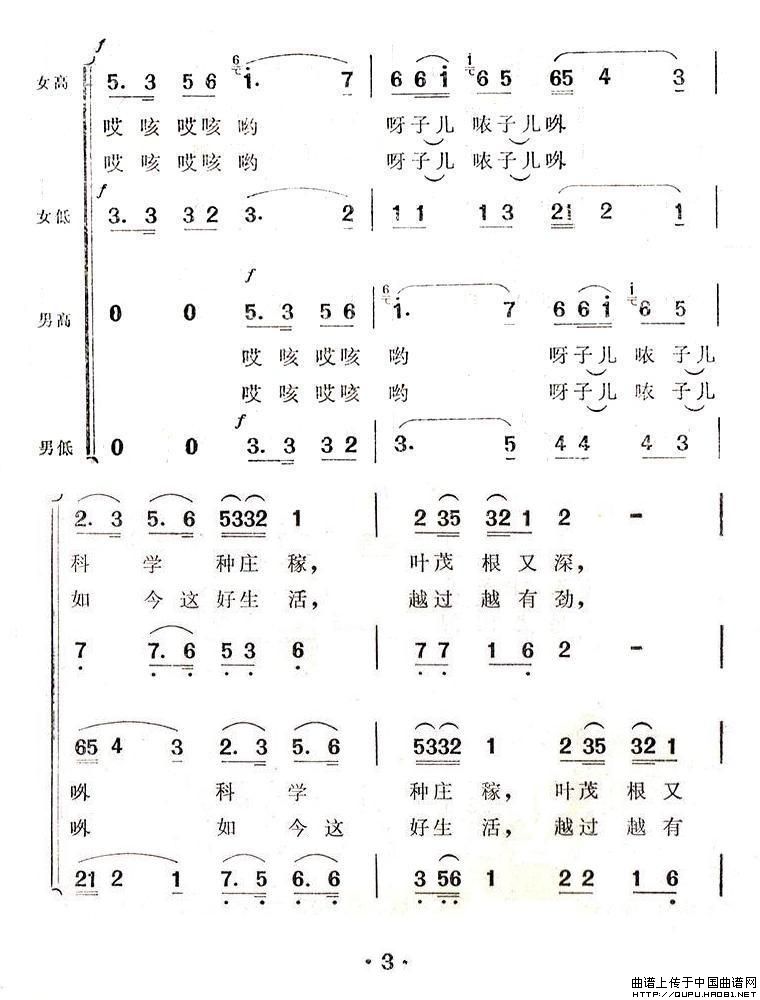 f
女高 5. 3 5 6 6 i. 7 | 6 6 i i 6 5 65 4 3 |
哎咳哎咳哟 呀子儿 哝子儿㖿
哎咳哎咳哟 呀子儿 哝子儿㖿
f
女低 3. 3 3 2 3. 2 | 1 1 1 3 21 2 1 |
f
男高 0 0 5. 3 5 6 | 6 i. 7 6 6 i i 6 5 |
哎咳哎咳 哟 呀子儿 哝子儿
哎咳哎咳 哟 呀子儿 哝子儿
f
男低 0 0 3. 3 3 2 | 3. 5 4 4 4 3 |
2. 3 5. 6 5332 1 | 2 35 32 1 2 - |
科 学 种庄稼, 叶茂 根又深,
如 今这 好生活, 越过 越有劲,
7 7. 6 5 3 6 | 7 7 1 6 2 - |
65 4 3 2. 3 5. 6 | 5332 1 2 35 32 1 |
科 学 种庄稼, 叶茂 根又
如 今这 好生活, 越过 越有
21 2 1 7. 5 6. 6 | 3 56 1 2 2 1 6 |
· 3 ·
曲谱上传于中国曲谱网
HTTP://QUPU.HAO81.NET